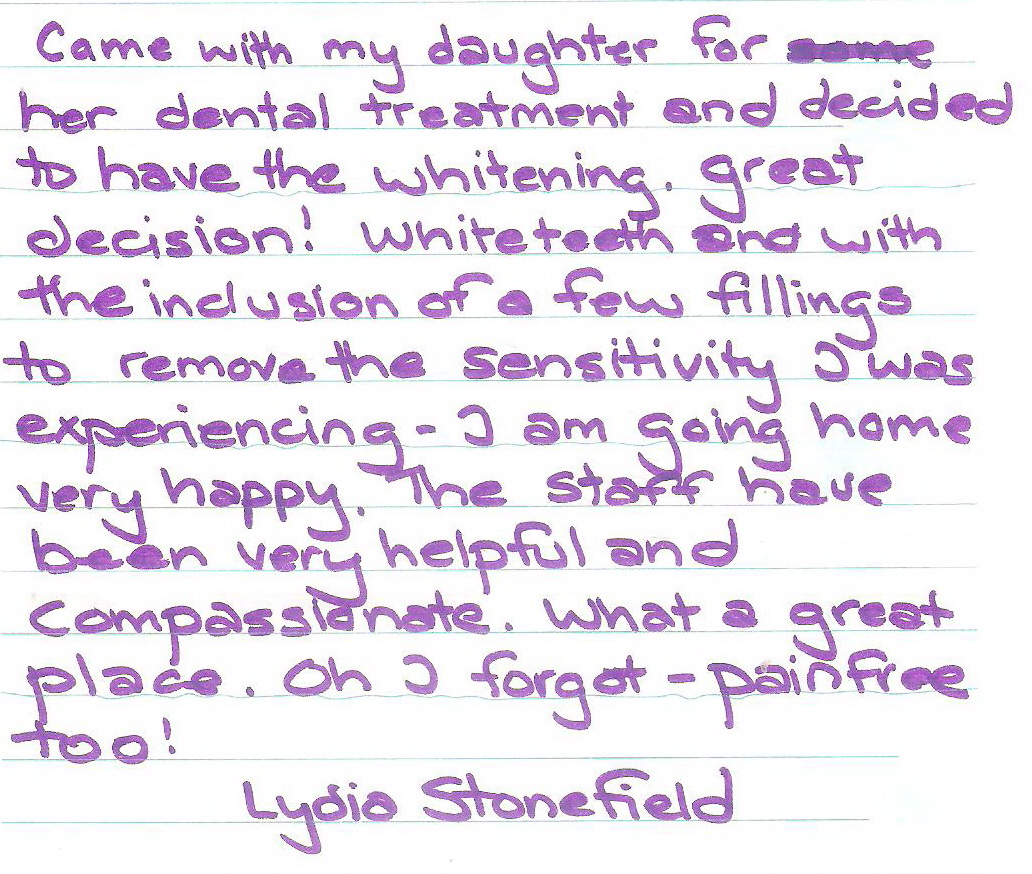 Came with my daughter for some
her dental treatment and decided
to have the whitening. great
decision! White teeth and with
the inclusion of a few fillings
to remove the sensitivity I was
experiencing - I am going home
very happy. The staff have
been very helpful and
compassionate. What a great
place. Oh I forgot - painfree
too!
Lydia Stonefield